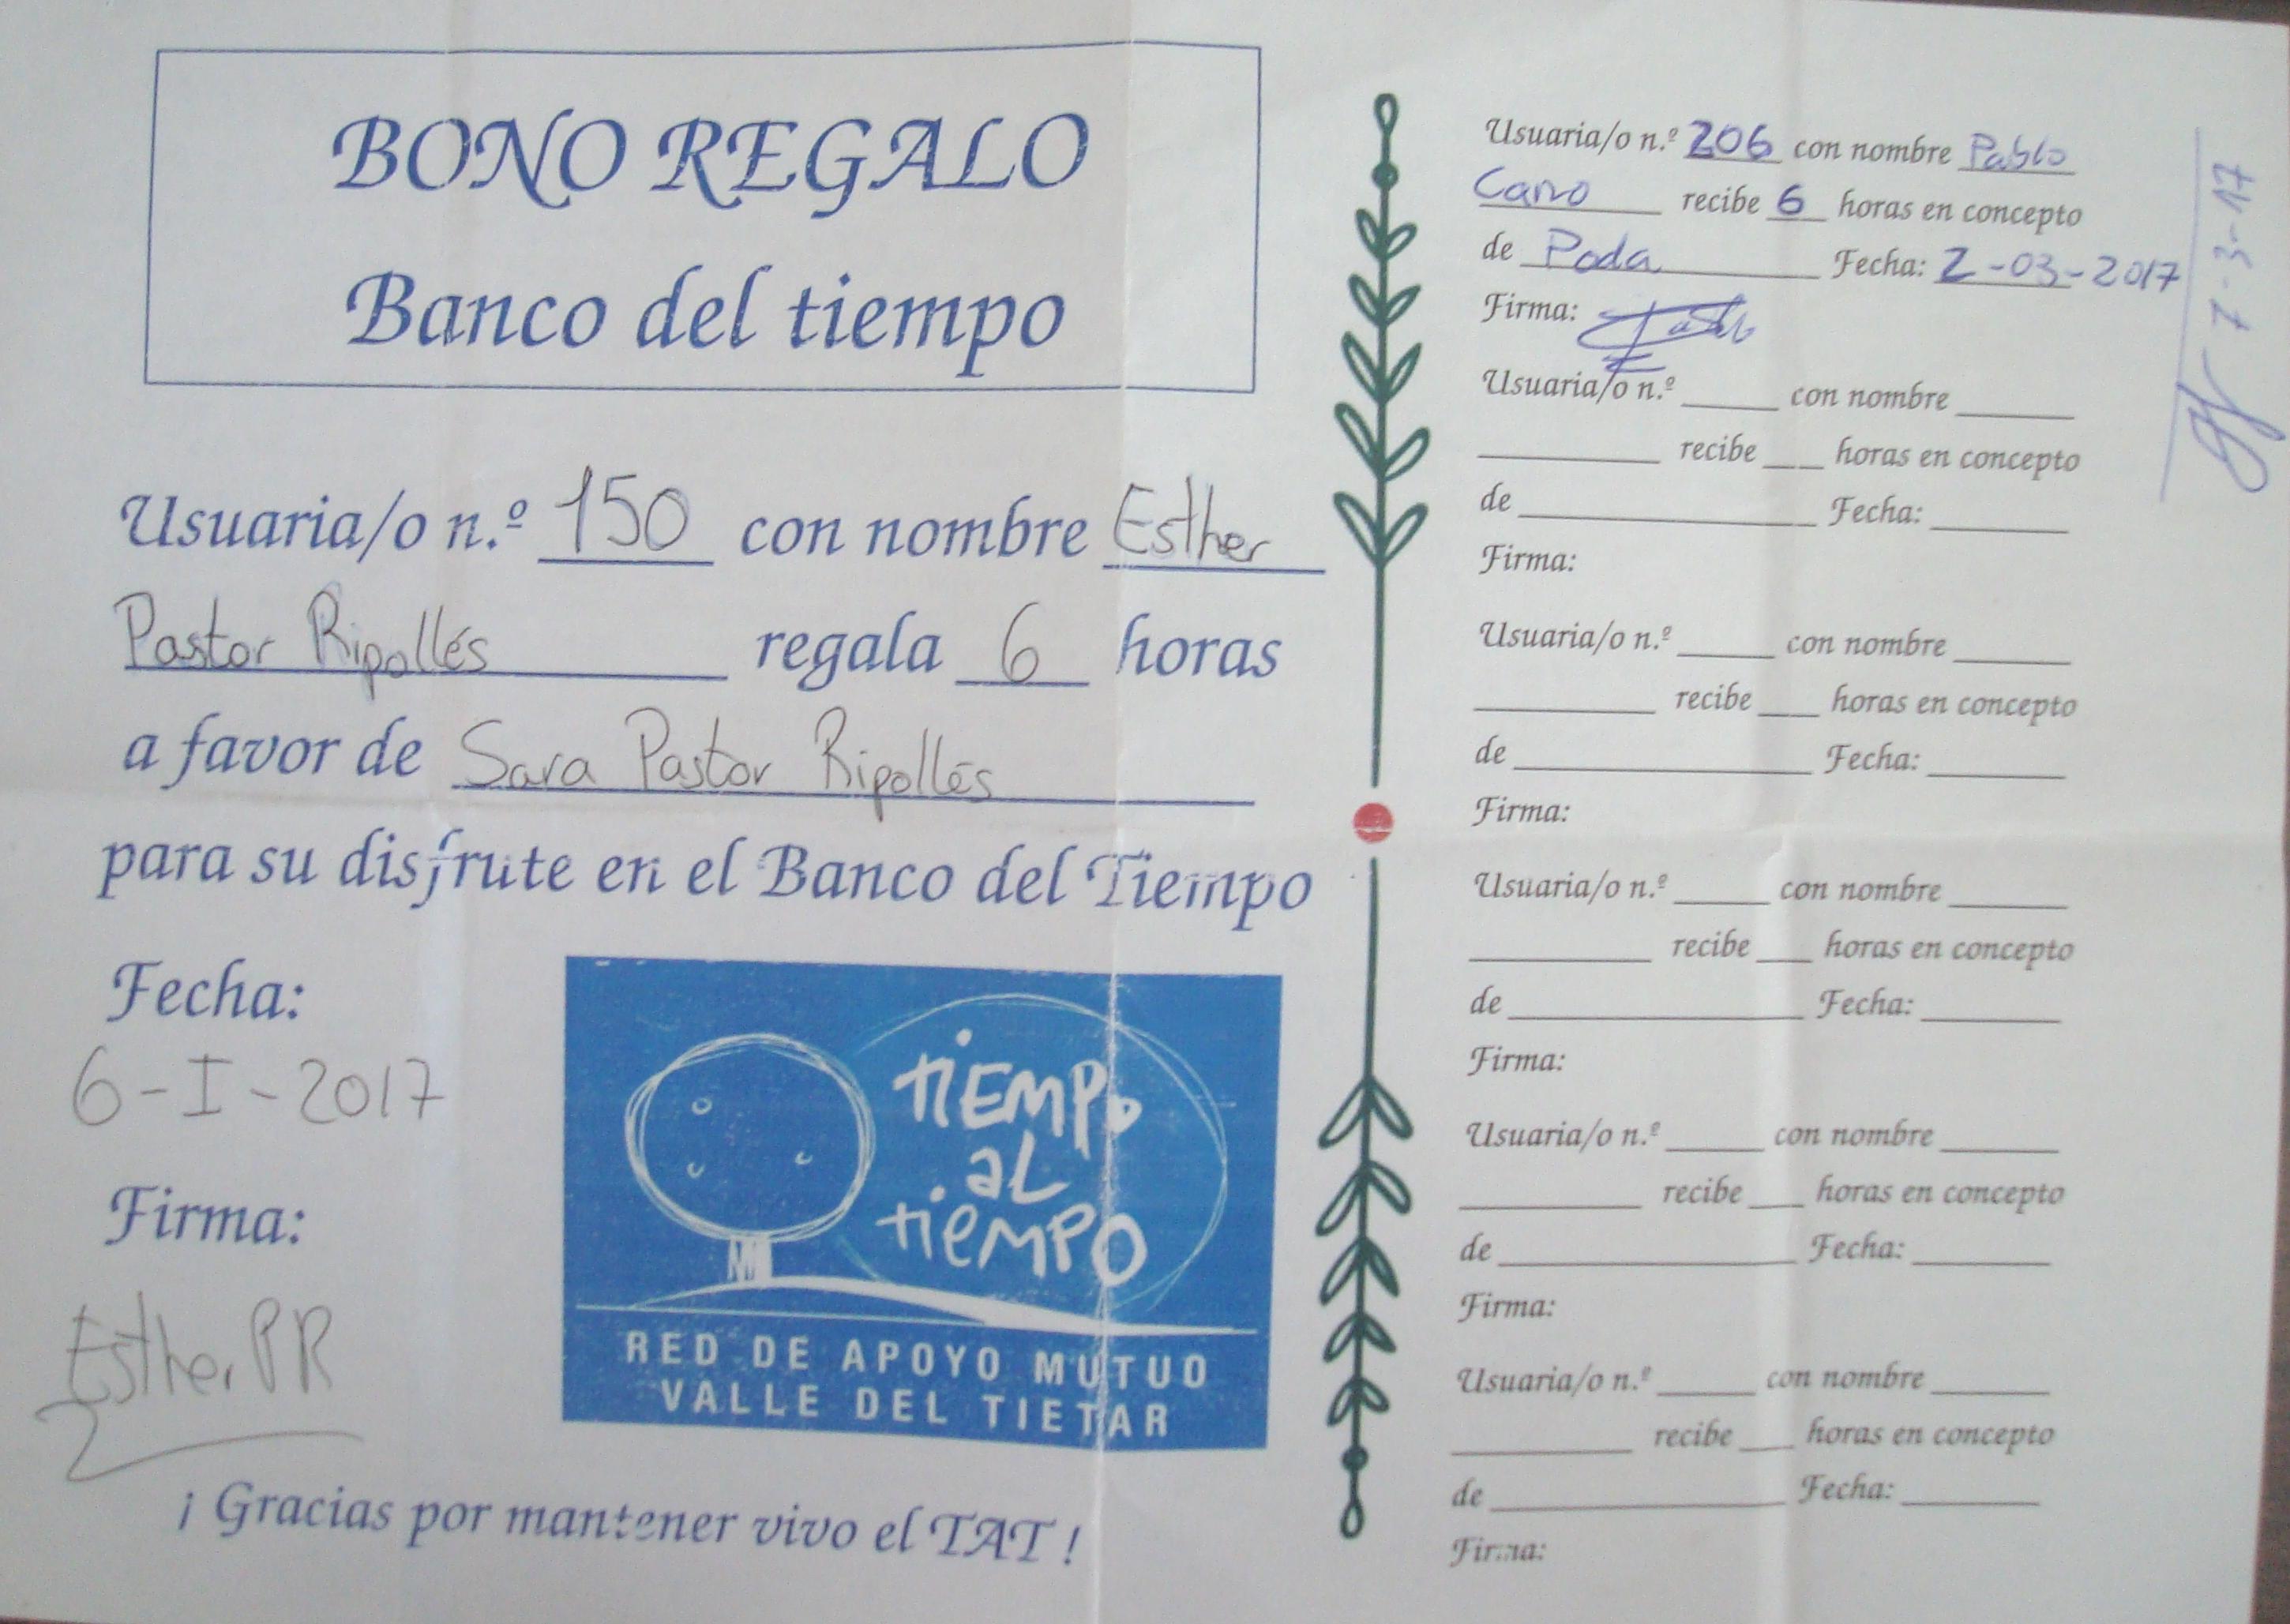 BONO REGALO
Banco del tiempo
Usuaria/o n.º 150 con nombre Esther
Pastor Ripollés regala 6 horas
a favor de Sara Pastor Ripollés
para su disfrute en el Banco del Tiempo
Fecha:
6-I-2017
Firma:
Esther PR
TIEMPO
AL
TIEMPO
RED DE APOYO MUTUO
VALLE DEL TIETAR
¡Gracias por mantener vivo el TAT!
Usuaria/o n.º 206 con nombre Pablo
Cano recibe 6 horas en concepto
de Poda Fecha: 2-03-2017
Firma:
Usuaria/o n.º con nombre
recibe horas en concepto
de Fecha:
Firma:
Usuaria/o n.º con nombre
recibe horas en concepto
de Fecha:
Firma:
Usuaria/o n.º con nombre
recibe horas en concepto
de Fecha:
Firma:
Usuaria/o n.º con nombre
recibe horas en concepto
de Fecha:
Firma:
Usuaria/o n.º con nombre
recibe horas en concepto
de Fecha:
Firma:
7-3-17